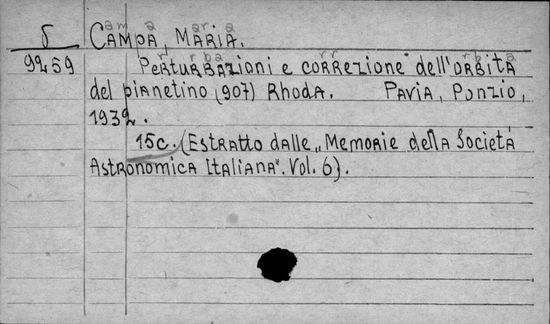 δ CAMPA, MARIA.
9259 Perturbazioni e correzione dell'orbita
del pianetino (907) Rhoda. Pavia, Ponzio,
1932.
15c. (Estratto dalle „Memorie della Società
Astronomica Italiana". Vol. 6).